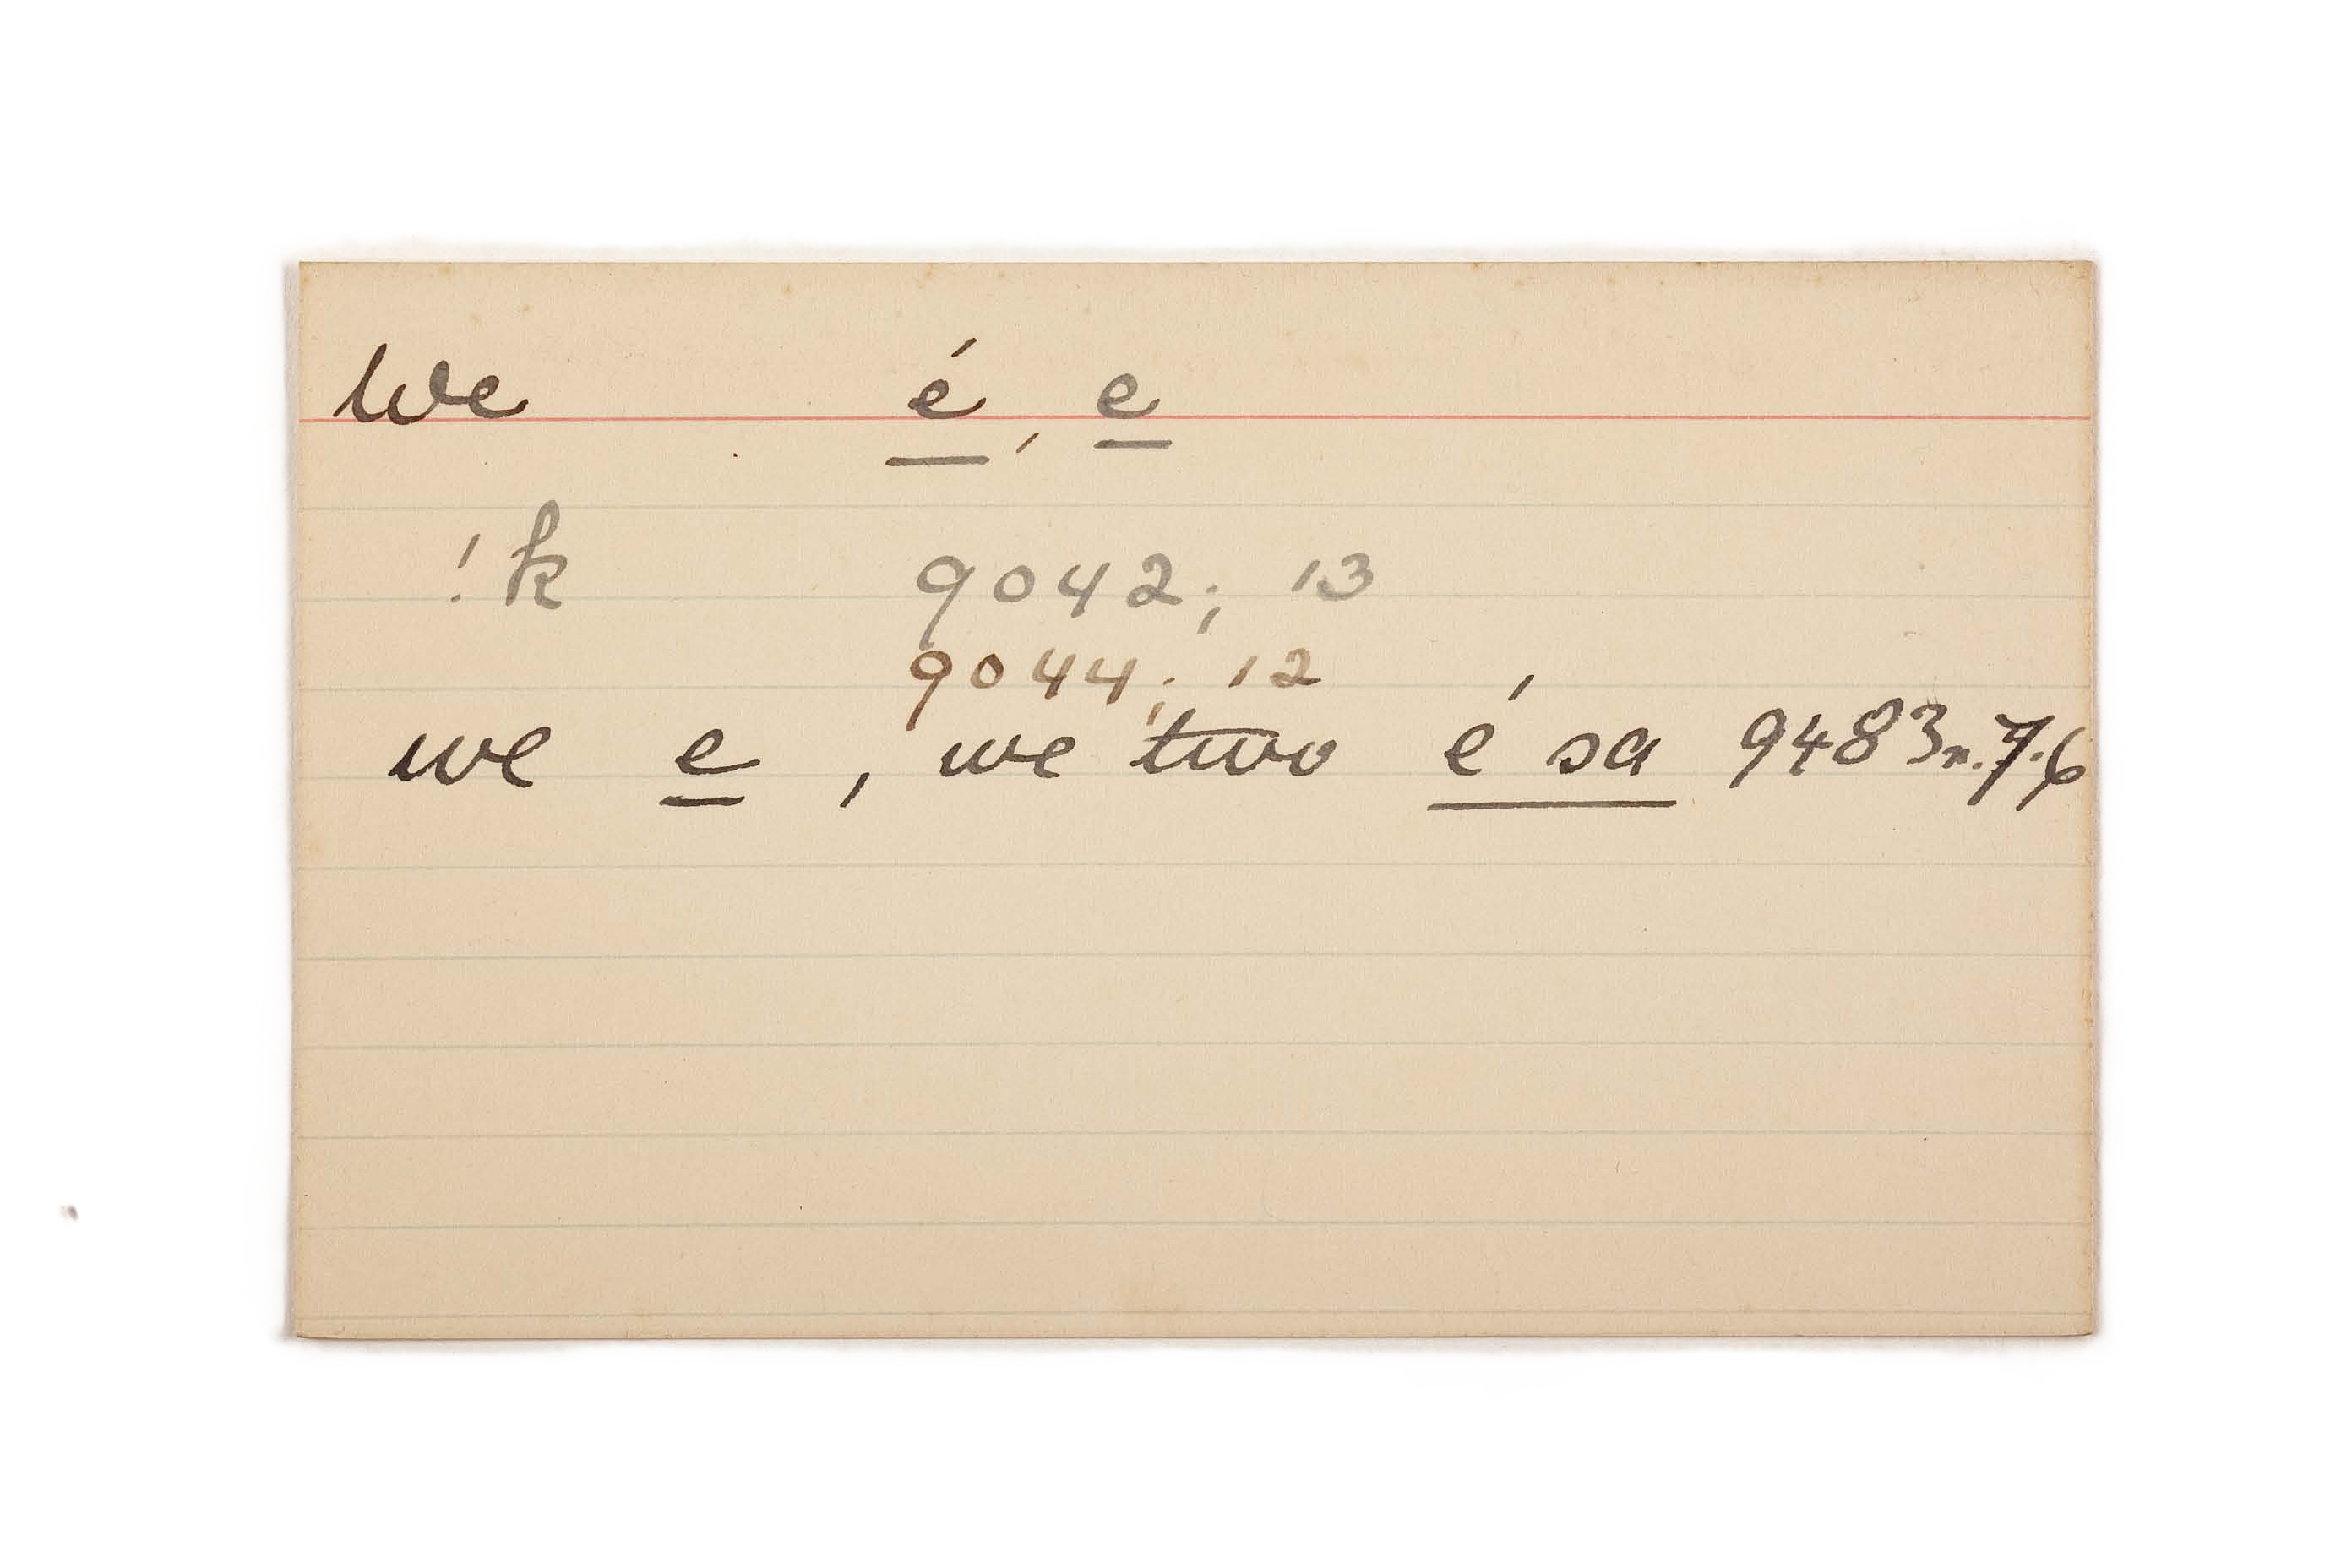 We é, e
!k 9042; 13
9044; 12
we e, we two é sa 9483n. 7.6